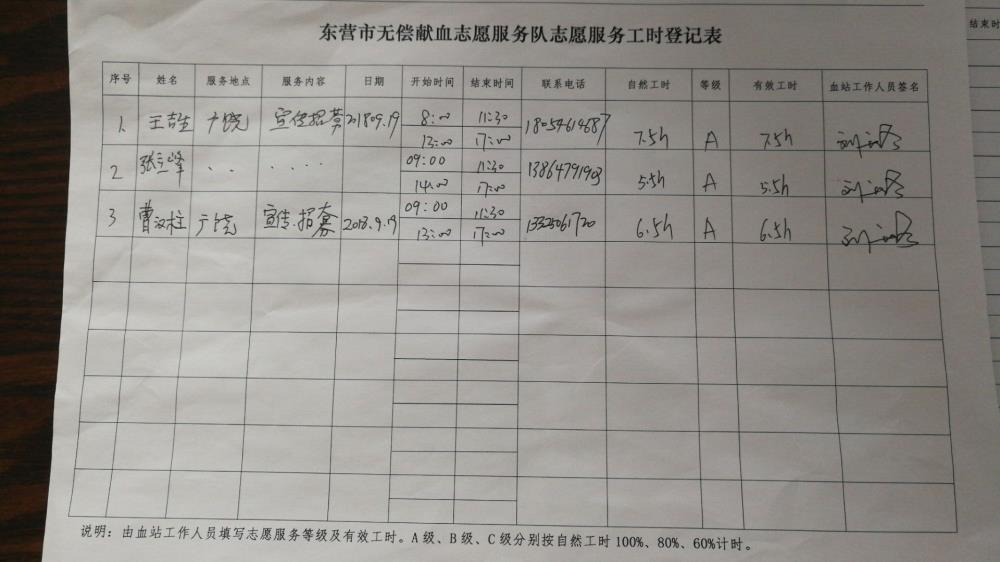 东营市无偿献血志愿服务队志愿服务工时登记表
结束时
序号 姓名 服务地点 服务内容 日期 开始时间 结束时间 联系电话 自然工时 等级 有效工时 血站工作人员签名
1. 广饶 宣传招募 201809.19 8:00 11:30 18054614687 7.5h A 7.5h
13:00 17:00
2 张立峰 . . . . . . 09:00 11:30 13864791903 5.5h A 5.5h
14:00 17:00
3 曹汉柱 广饶 宣传.招募 2018.9.19 09:00 11:30 13325061720 6.5h A 6.5h
13:00 17:00
说明：由血站工作人员填写志愿服务等级及有效工时。A 级、B 级、C 级分别按自然工时 100%、80%、60%计时。